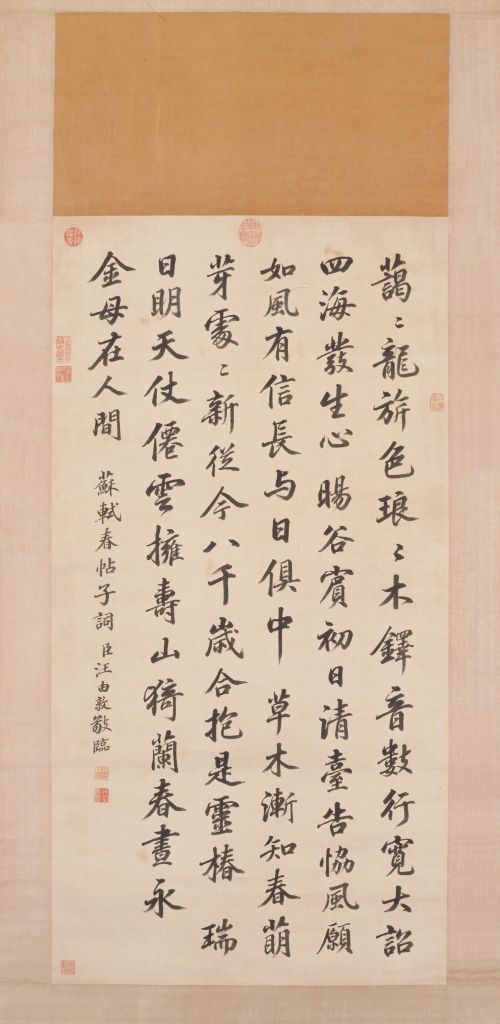 藹〻龍旂色琅〻木鐸音數行寬大詔
四海發生心暘谷賓初日清臺告協風願
如風有信長与日俱中 草木漸知春萠
芽處〻新從今八千歲合抱是靈椿 瑞
日明天仗僊雲擁壽山猗蘭春晝永
金母在人間
蘇軾春帖子詞 臣汪由敦敬臨